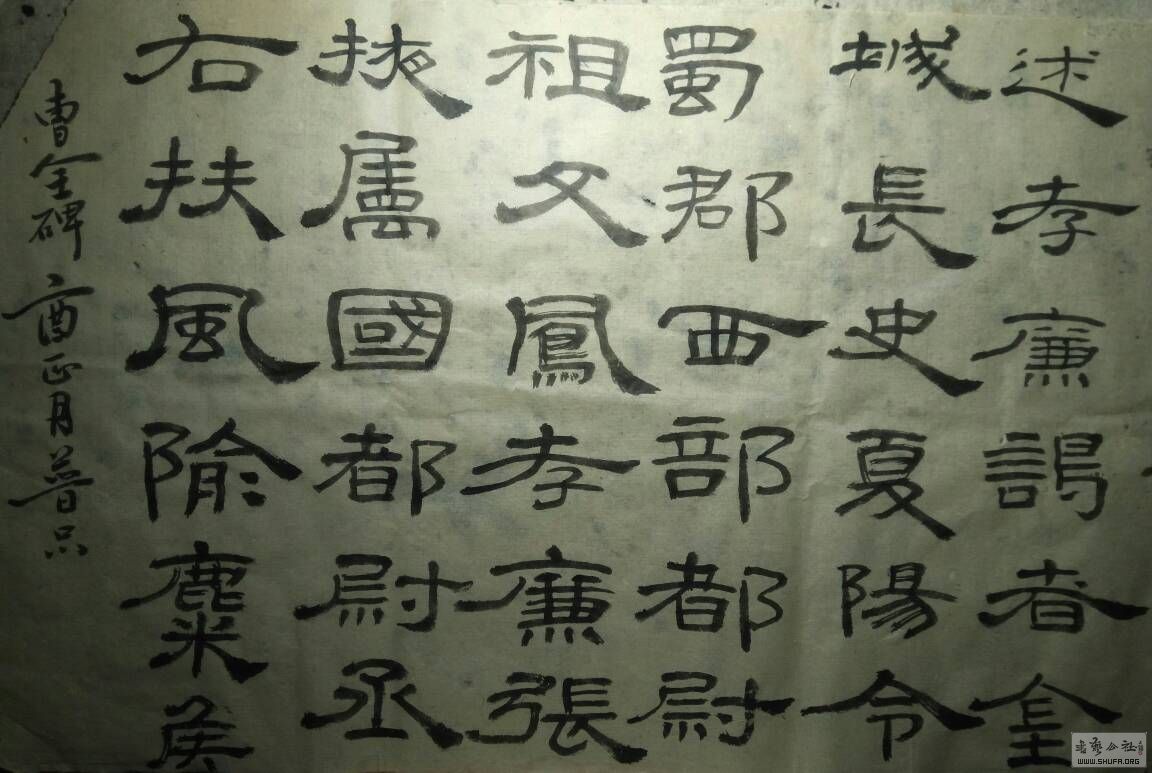 述孝廉謁者金
城長史夏陽令
蜀郡西部都尉
祖父鳳孝廉張
掖屬國都尉丞
右扶風隃麋侯
曹全碑 酉正月
书艺公社
WWW.SHUFA.ORG